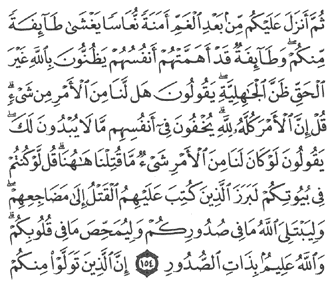 ثُمَّ أَنزَلَ عَلَيْكُم مِّنۢ بَعْدِ ٱلْغَمِّ أَمَنَةً نُّعَاسًا يَغْشَىٰ طَآئِفَةً
مِّنكُمْ ۖ وَطَآئِفَةٌ قَدْ أَهَمَّتْهُمْ أَنفُسُهُمْ يَظُنُّونَ بِٱللَّهِ غَيْرَ
ٱلْحَقِّ ظَنَّ ٱلْجَٰهِلِيَّةِ ۖ يَقُولُونَ هَل لَّنَا مِنَ ٱلْأَمْرِ مِن شَىْءٍ ۗ
قُلْ إِنَّ ٱلْأَمْرَ كُلَّهُۥ لِلَّهِ ۗ يُخْفُونَ فِىٓ أَنفُسِهِم مَّا لَا يُبْدُونَ لَكَ ۖ
يَقُولُونَ لَوْ كَانَ لَنَا مِنَ ٱلْأَمْرِ شَىْءٌ مَّا قُتِلْنَا هَٰهُنَا ۗ قُل لَّوْ كُنتُمْ
فِى بُيُوتِكُمْ لَبَرَزَ ٱلَّذِينَ كُتِبَ عَلَيْهِمُ ٱلْقَتْلُ إِلَىٰ مَضَاجِعِهِمْ ۖ
وَلِيَبْتَلِىَ ٱللَّهُ مَا فِى صُدُورِكُمْ وَلِيُمَحِّصَ مَا فِى قُلُوبِكُمْ ۗ
وَٱللَّهُ عَلِيمٌۢ بِذَاتِ ٱلصُّدُورِ ١٥٤ إِنَّ ٱلَّذِينَ تَوَلَّوْا۟ مِنكُمْ